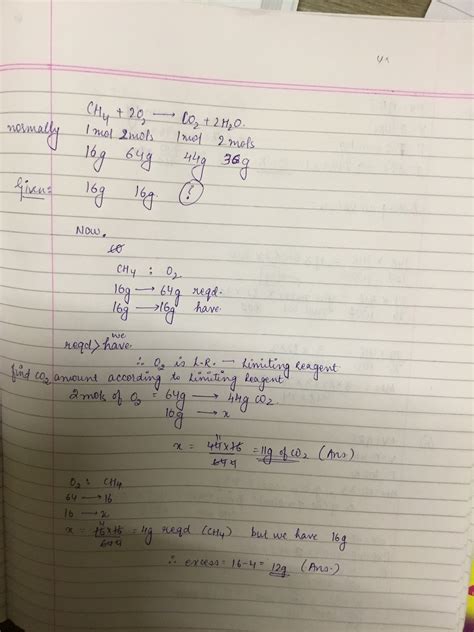 CH4 + 2O2 → CO2 + 2H2O.
normally 1 mol 2 mols 1 mol 2 mols
16g 64g 44g 36g
Given: 16g 16g ?
Now,
CH4 : O2
16g → 64g reqd.
16g → 16g have.
reqd > we have.
∴ O2 is L.R. — Limiting reagent
find CO2 amount according to Limiting Reagent
2 mols of O2 = 64g → 44g CO2
16g → x
x = 44×16/64 = 11g of CO2 (Ans)
O2 : CH4
64 → 16
16 → x
x = 16×16/64 = 4g reqd (CH4) but we have 16g
∴ excess = 16-4 = 12g (Ans.)